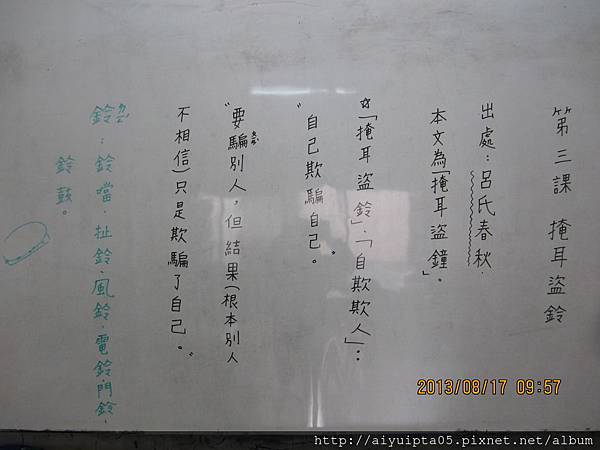 第三課 掩耳盜鈴
出處：呂氏春秋．
本文為「掩耳盜鐘」。
☆「掩耳盜鈴」．「自欺欺人」：
"自己欺騙自己。"
"要騙別人，但結果(根本別人
不相信)只是欺騙了自己。"
鈴：鈴噹．扯鈴．風鈴．電鈴．門鈴．
鈴鼓。
2013/08/17 09:57
http://aiyuipta05.pixnet.net/album